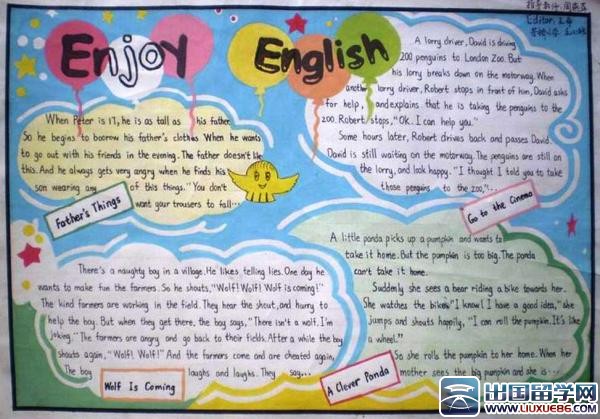 Enjoy English
指导教师:周燕萍
Editor:
A lorry driver, David is driving
200 penguins to London Zoo. But
his lorry breaks down on the motorway. When
another lorry driver, Robert stops in front of him, David asks
for help, and explains that he is taking the penguins to the
zoo. Robert stops, "Ok. I can help you."
Some hours later, Robert drives back and passes David.
David is still waiting on the motorway. The penguins are still on
the lorry, and look happy. "I thought I told you to take
those penguins to the zoo,"...
Go to the Cinema
When Peter is 17, he is as tall as his father.
So he begins to boorow his father's clothes When he wants
to go out with his friends in the evening. The father doesn't like
this. And he always gets very angry when he finds his
son wearing any of this things." You don't
want your trousers to fall...
Father's Things
There's a naughty boy in a village. He likes telling lies. One day he
wants to make fun the farmers. So he shouts, "Wolf! Wolf! Wolf is coming!"
The kind farmers are working in the field. They hear the shout, and hurry to
help the boy. But when they get there, the boy says, "There isn't a wolf. I'm
joking." The farmers are angry and go back to their fields. After a while the boy
shouts again, "Wolf! Wolf!" And the farmers come and are cheated again,
The boy laughs and laughs. They say...
Wolf Is Coming
A little panda picks up a pumpkin and wants to
take it home. But the pumpkin is too big. The panda
can't take it home.
Suddenly she sees a bear riding a bike towards her.
She watches the bike. "I know! I have a good idea," she
jumps and shouts happily, "I can roll the pumpkin. It's like
a wheel."
So she rolls the pumpkin to her home. When her
mother sees the big pumpkin and she is...
A Clever Panda
出国留学网
www.liuxue86.com